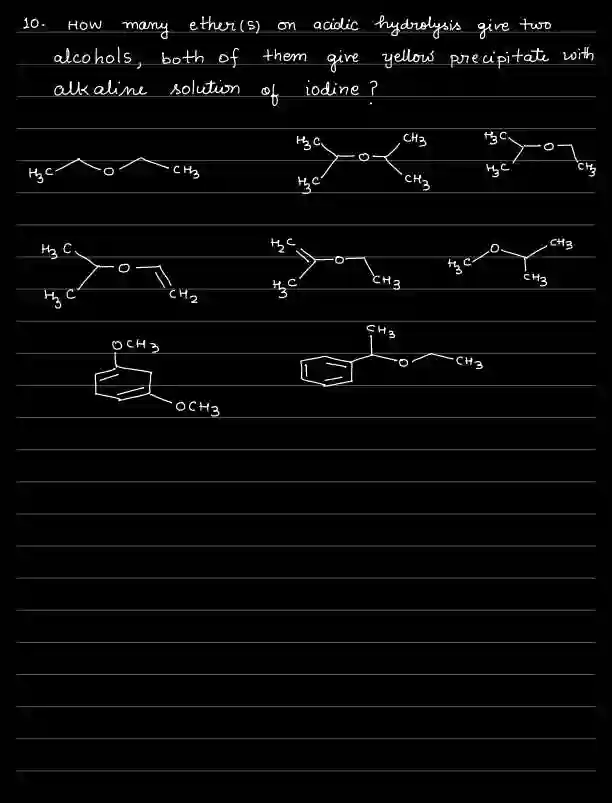 10. How many ether(s) on acidic hydrolysis give two
alcohols, both of them give yellow precipitate with
alkaline solution of iodine?
H3C O CH3
H3C H3C O CH3 CH3
H3C H3C O CH3
H3C H3C O CH2
H2C H3C O CH3
H3C O CH3 CH3
OCH3 OCH3
CH3 O CH3